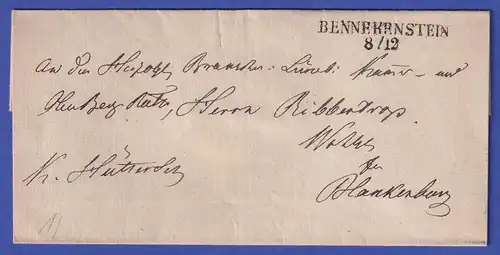 BENNEKENSTEIN
8/12
An den Herzogl. Braunschw: Lüneb: Kammer- und
Rath, Herrn Ribbentrop
Wohlg.
zu
Blankenburg